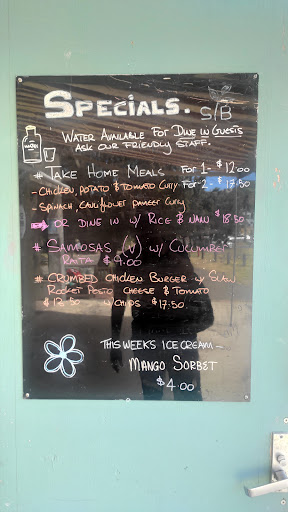 SPECIALS. S/B
WATER AVAILABLE FOR DINE IN GUESTS
ASK OUR FRIENDLY STAFF.
WATER
# TAKE HOME MEALS FOR 1 - $12.00
- CHICKEN, POTATO & TOMATO CURRY FOR 2 - $17.50
- SPINACH, CAULIFLOWER PANEER CURRY
OR DINE IN W/ RICE & NAAN $18.50
# SAMOSAS (V) W/ CUCUMBER
RAITA $9.00
# CRUMBED CHICKEN BURGER W SLAW
ROCKET PESTO CHEESE & TOMATO
$13.50 W/CHIPS $17.50
THIS WEEKS ICE CREAM -
MANGO SORBET
$4.00